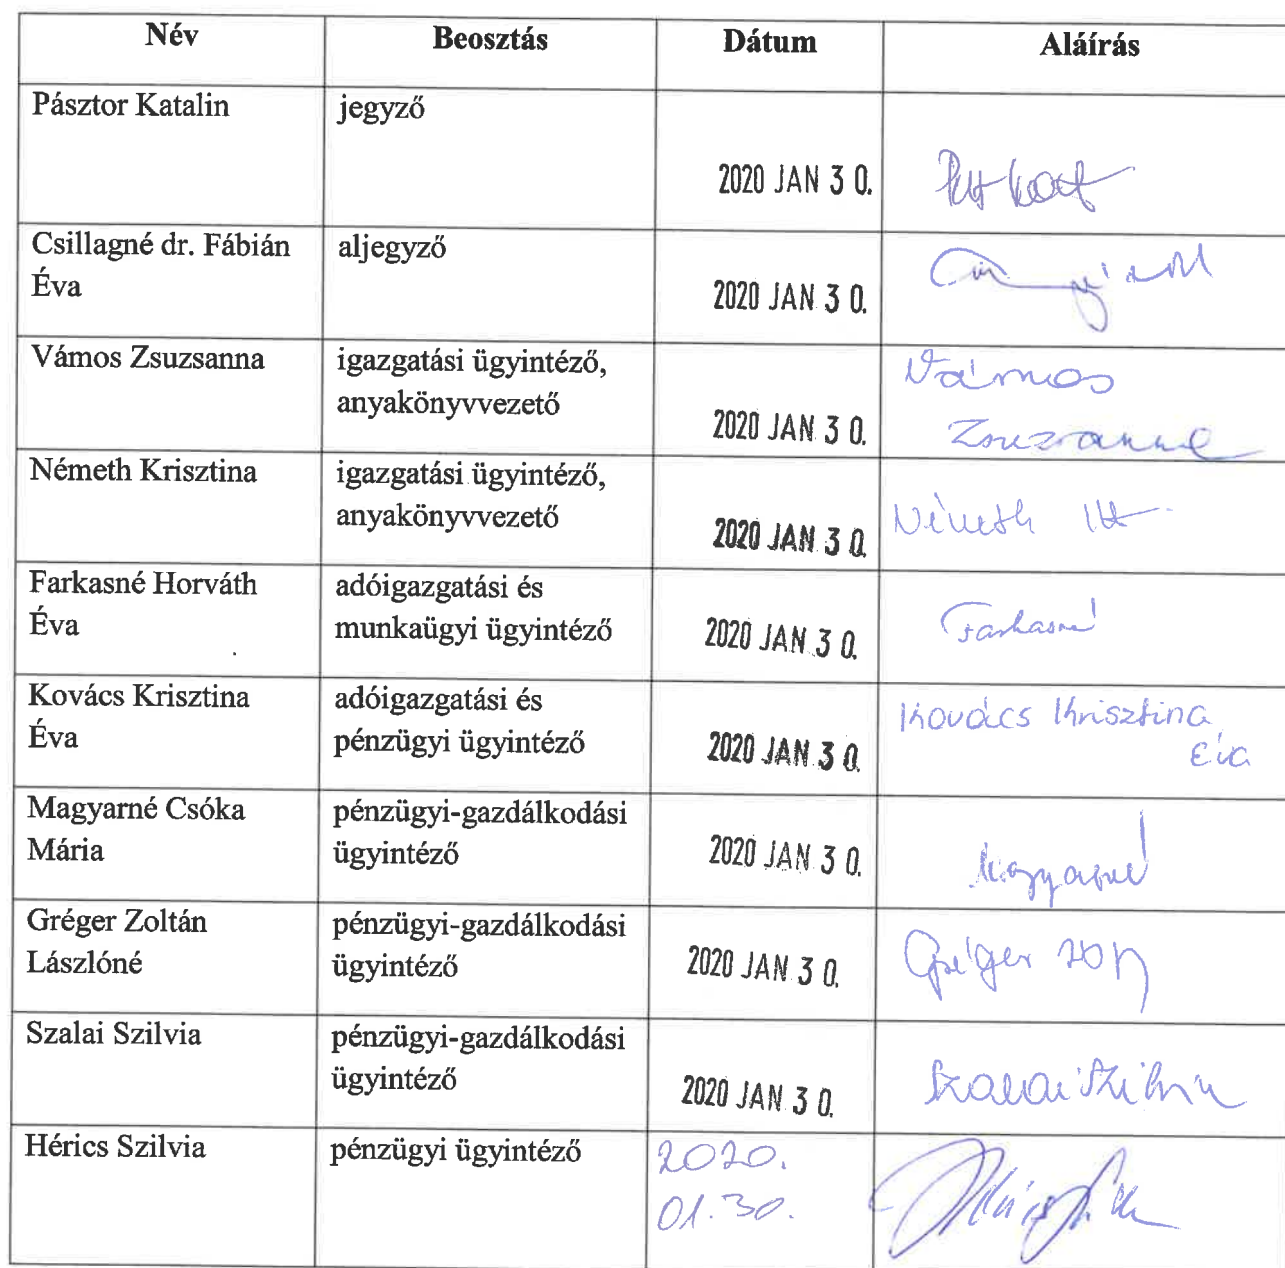 Név Beosztás Dátum Aláírás
Pásztor Katalin jegyző
2020 JAN 3 0.
Csillagné dr. Fábián aljegyző
Éva
2020 JAN 3 0.
Vámos Zsuzsanna igazgatási ügyintéző, Vámos
anyakönyvvezető
2020 JAN 3 0. Zsuzsanna
Németh Krisztina igazgatási ügyintéző,
anyakönyvvezető Németh
2020 JAN 3 0.
Farkasné Horváth adóigazgatási és
Éva munkaügyi ügyintéző 2020 JAN 3 0. Farkasné
Kovács Krisztina adóigazgatási és Kovács Krisztina
Éva pénzügyi ügyintéző 2020 JAN 3 0. Éva
Magyarné Csóka pénzügyi-gazdálkodási
Mária ügyintéző 2020 JAN 3 0. Magyarné
Gréger Zoltán pénzügyi-gazdálkodási
Lászlóné ügyintéző 2020 JAN 3 0. Gréger
Szalai Szilvia pénzügyi-gazdálkodási
ügyintéző 2020 JAN 3 0. Szalai Szilvia
Hérics Szilvia pénzügyi ügyintéző 2020.
01.30.